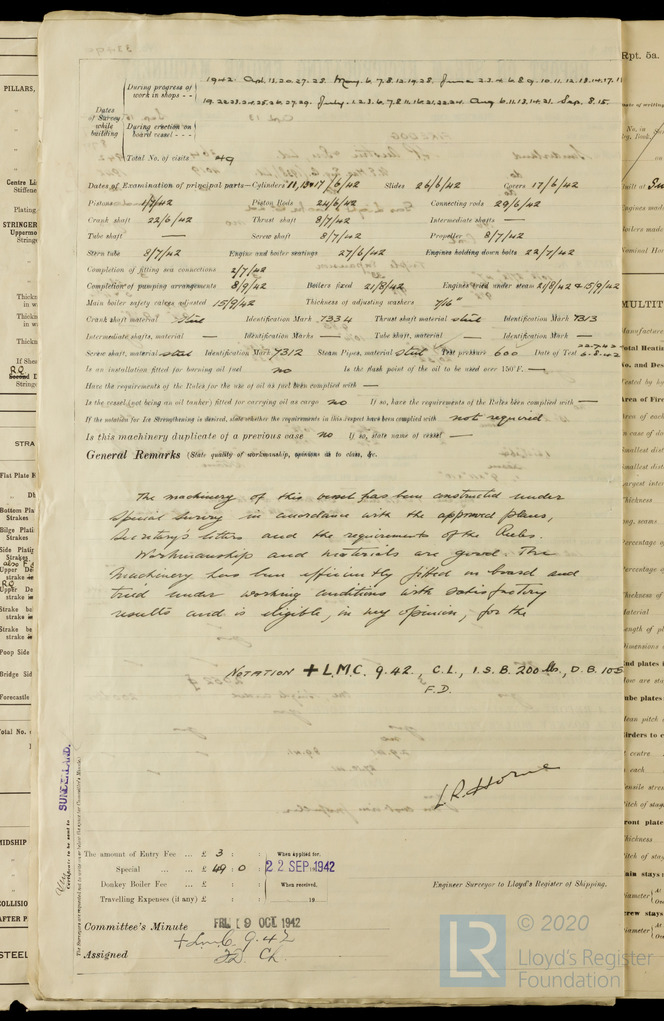 Rpt. 5a.
During progress of work in shops - -
1942: Apl. 13.20.27.28. May. 6.7.8.12.19.28. June 2.3.4.6.8.9.10.11.12.13.14.17.
19.22.23.24.25.26.27.29. July. 1.2.3.6.7.8.11.16.21.22.24. Aug 6.11.13.14.21. Sep. 8.15.
Dates of Survey while building
During erection on board vessel - - -
Total No. of visits 49
Dates of Examination of principal parts—Cylinders 11,13+17/6/42 Slides 26/6/42 Covers 17/6/42
Pistons 1/7/42 Piston Rods 24/6/42 Connecting rods 29/6/42
Crank shaft 22/6/42 Thrust shaft 8/7/42 Intermediate shafts —
Tube shaft — Screw shaft 8/7/42 Propeller 8/7/42
Stern tube 8/7/42 Engine and boiler seatings 27/6/42 Engines holding down bolts 22/7/42
Completion of fitting sea connections 2/7/42
Completion of pumping arrangements 8/9/42 Boilers fixed 21/8/42 Engines tried under steam 21/8/42 & 15/9/42
Main boiler safety valves adjusted 15/9/42 Thickness of adjusting washers 7/16"
Crank shaft material Steel Identification Mark 7334 Thrust shaft material steel Identification Mark 7313
Intermediate shafts, material — Identification Marks — Tube shaft, material — Identification Mark —
Screw shaft, material steel Identification Mark 7312 Steam Pipes, material Steel Test pressure 600 Date of Test 22.7.42 6.8.42
Is an installation fitted for burning oil fuel no Is the flash point of the oil to be used over 150°F. —
Have the requirements of the Rules for the use of oil as fuel been complied with —
Is the vessel (not being an oil tanker) fitted for carrying oil as cargo no If so, have the requirements of the Rules been complied with —
If the notation for Ice Strengthening is desired, state whether the requirements in this respect have been complied with not required
Is this machinery duplicate of a previous case no If so, state name of vessel —
General Remarks (State quality of workmanship, opinions as to class, &c.
The machinery of this vessel has been constructed under
special survey in accordance with the approved plans,
Secretary's letters and the requirements of the Rules.
Workmanship and materials are good. The
machinery has been efficiently fitted on board and
tried under working conditions with satisfactory
results and is eligible, in my opinion, for the
NOTATION + L.M.C. 9.42., C.L., I.S.B. 200 lbs., D.B. 105
F.D.
L.R. Horne
SUNDERLAND.
The amount of Entry Fee ... £ 3 : : When applied for,
Special ... ... £ 49 : 0 : 22 SEP 1942
Donkey Boiler Fee ... £ : : When received,
Travelling Expenses (if any) £ : : 19
Engineer Surveyor to Lloyd's Register of Shipping.
Committee's Minute FRI. 9 OCT 1942
Assigned + LMC 9.42
FD. CL.
© 2020
LR Lloyd's Register
Foundation